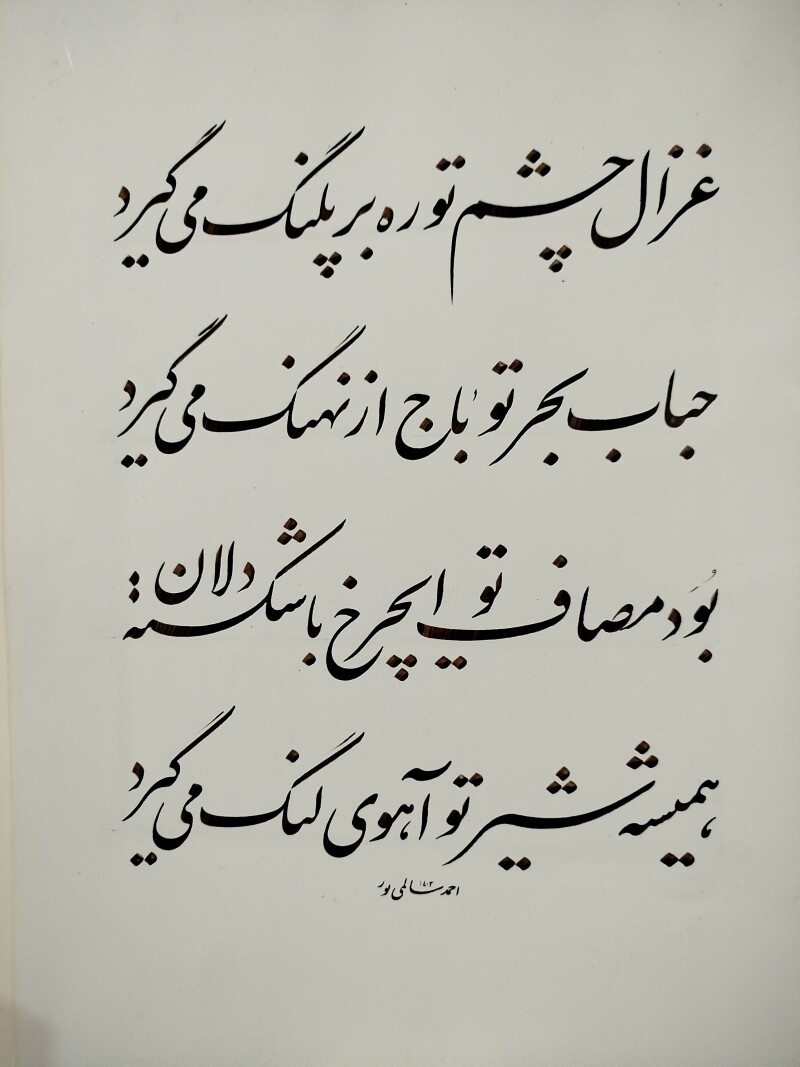 غزال چشم تو ره بر پلنگ می گیرد
حباب بحر تو باج از نهنگ می گیرد
بُوَد مصاف تو ای چرخ با شکسته دلان
همیشه شیر تو آهوی لنگ می گیرد
احمد سالمی پور ۱۴۰۲